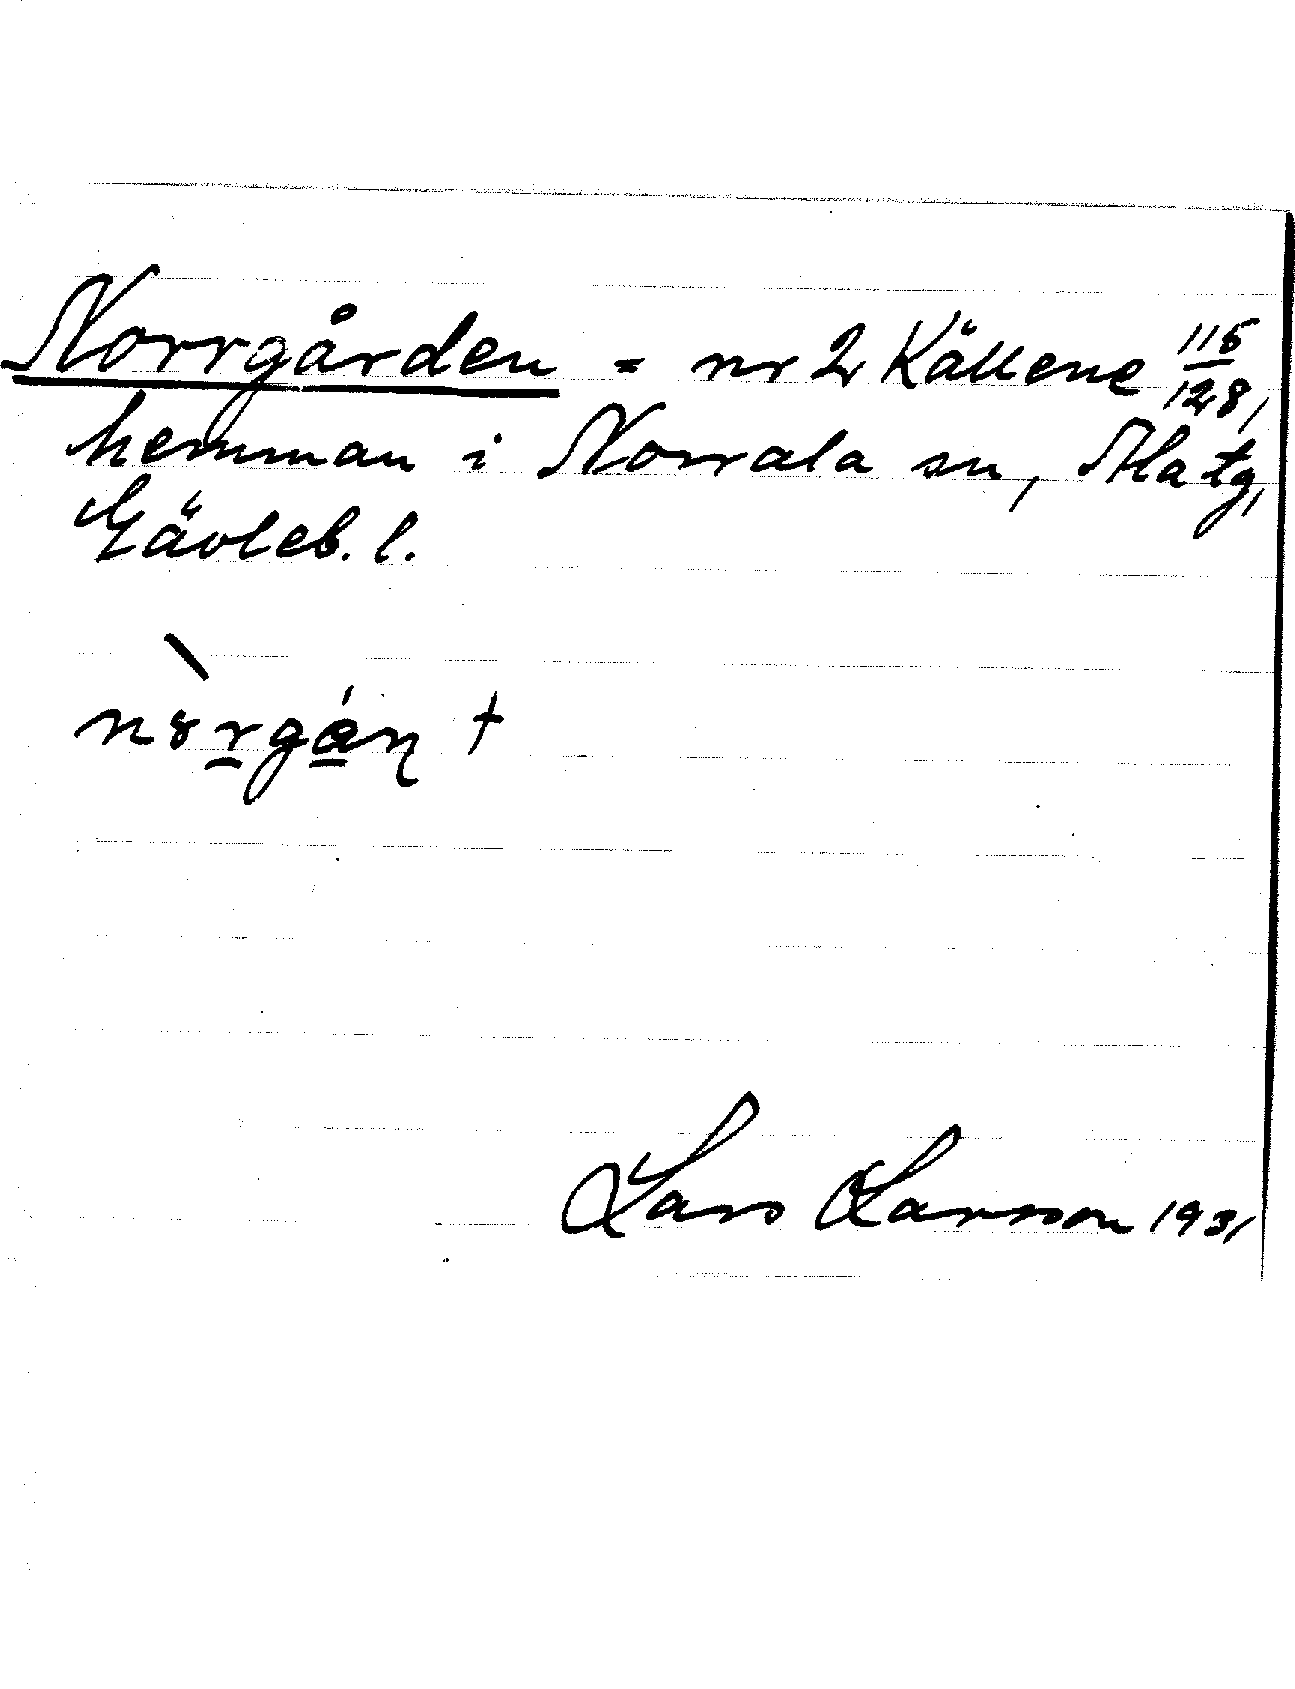 Norrgården = nr 2 Källene 115/128,
hemman i Norrala sn, Ala tg,
Gävleb. l.
Lars Larsson 1931